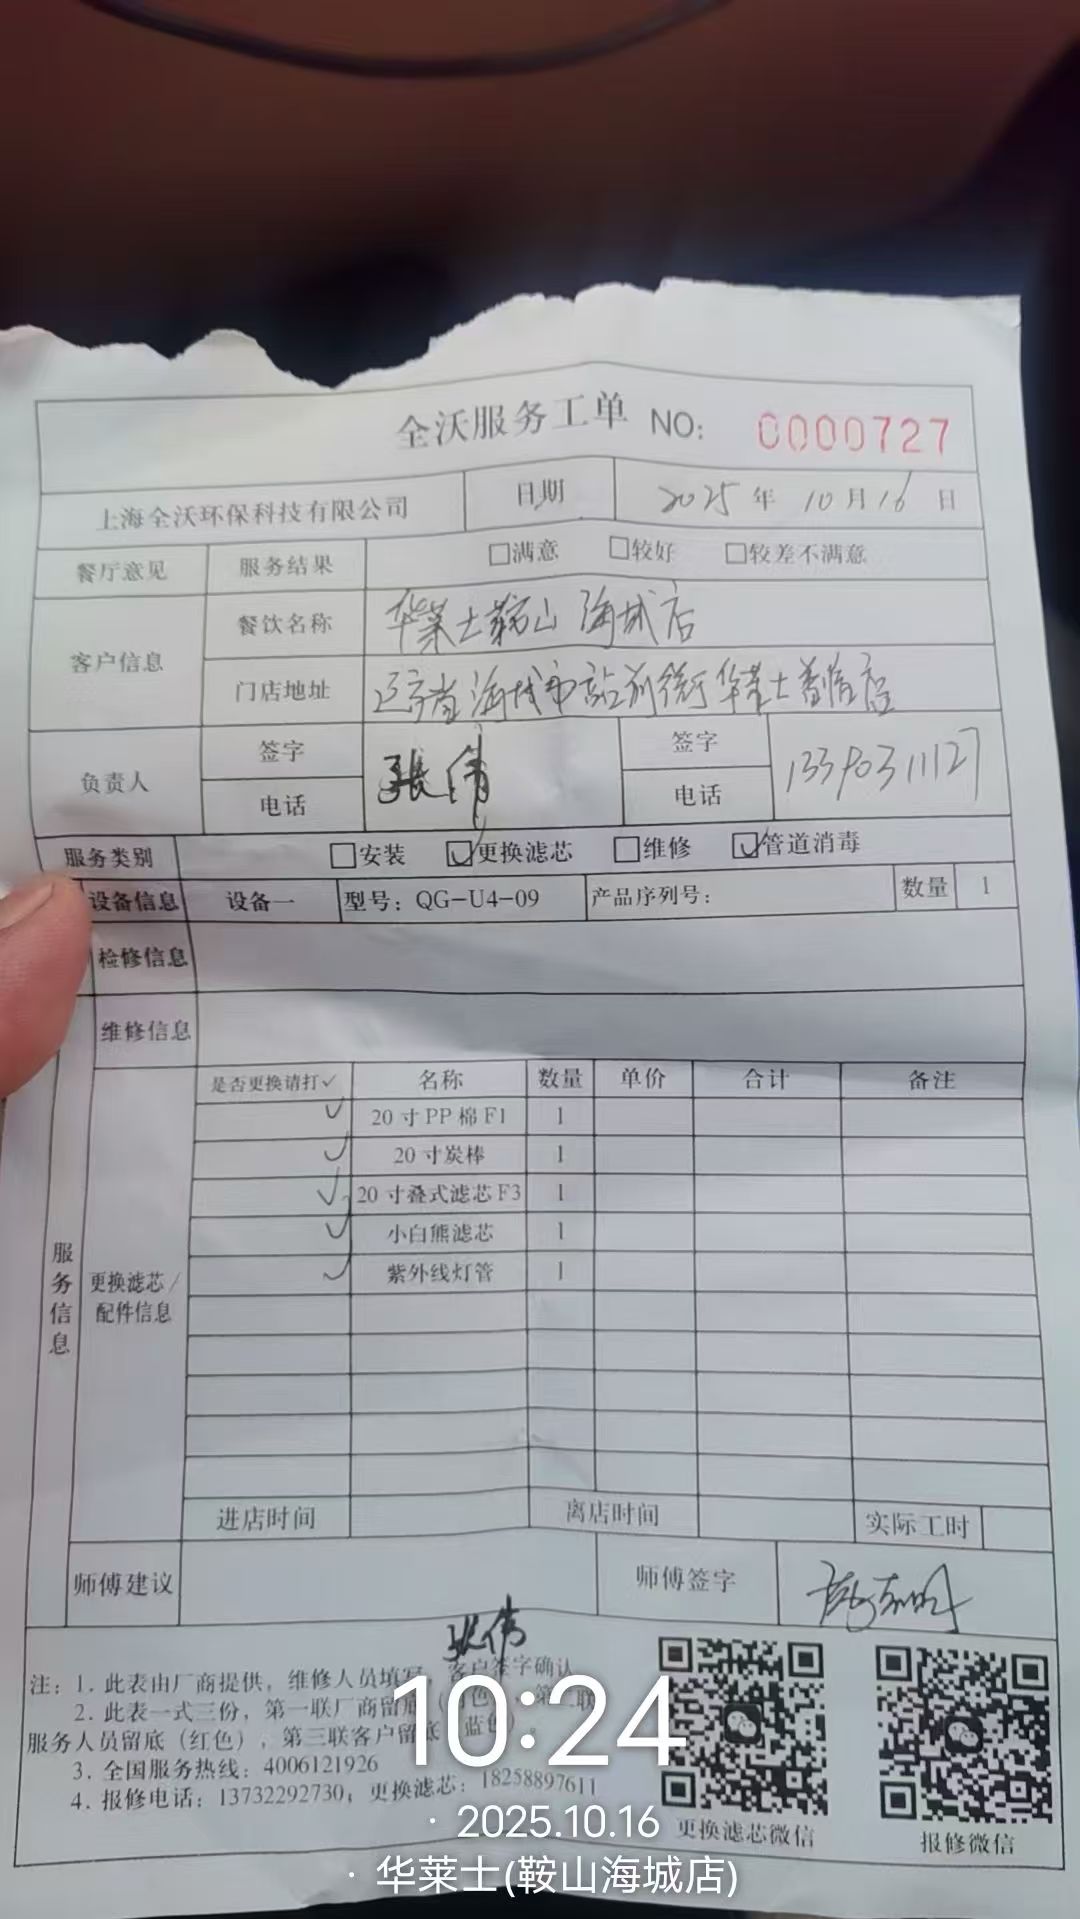 全沃服务工单 NO: 0000727
上海全沃环保科技有限公司 日期 2025年 10月16日
餐厅意见 服务结果 □满意 □较好 □较差不满意
客户信息 餐饮名称 华莱士鞍山海城店
门店地址 辽宁省海城市站前街华莱士普信店
负责人 签字 张伟 签字
电话 电话 13390311127
服务类别 □安装 ☑更换滤芯 □维修 ☑管道消毒
设备信息 设备一 型号：QG-U4-09 产品序列号： 数量 1
检修信息
维修信息
服务信息 更换滤芯/配件信息
是否更换请打✓ 名称 数量 单价 合计 备注
✓ 20寸PP棉F1 1
✓ 20寸炭棒 1
✓ 20寸叠式滤芯F3 1
✓ 小白熊滤芯 1
✓ 紫外线灯管 1
进店时间 离店时间 实际工时
师傅建议 师傅签字
张伟
注：1. 此表由厂商提供，维修人员填写，客户签字确认
2. 此表一式三份，第一联厂商留底（色），第二联
服务人员留底（红色），第三联客户留底（蓝色）。
3. 全国服务热线：4006121926
4. 报修电话：13732292730，更换滤芯：18258897611
更换滤芯微信 报修微信
10:24
· 2025.10.16
· 华莱士(鞍山海城店)